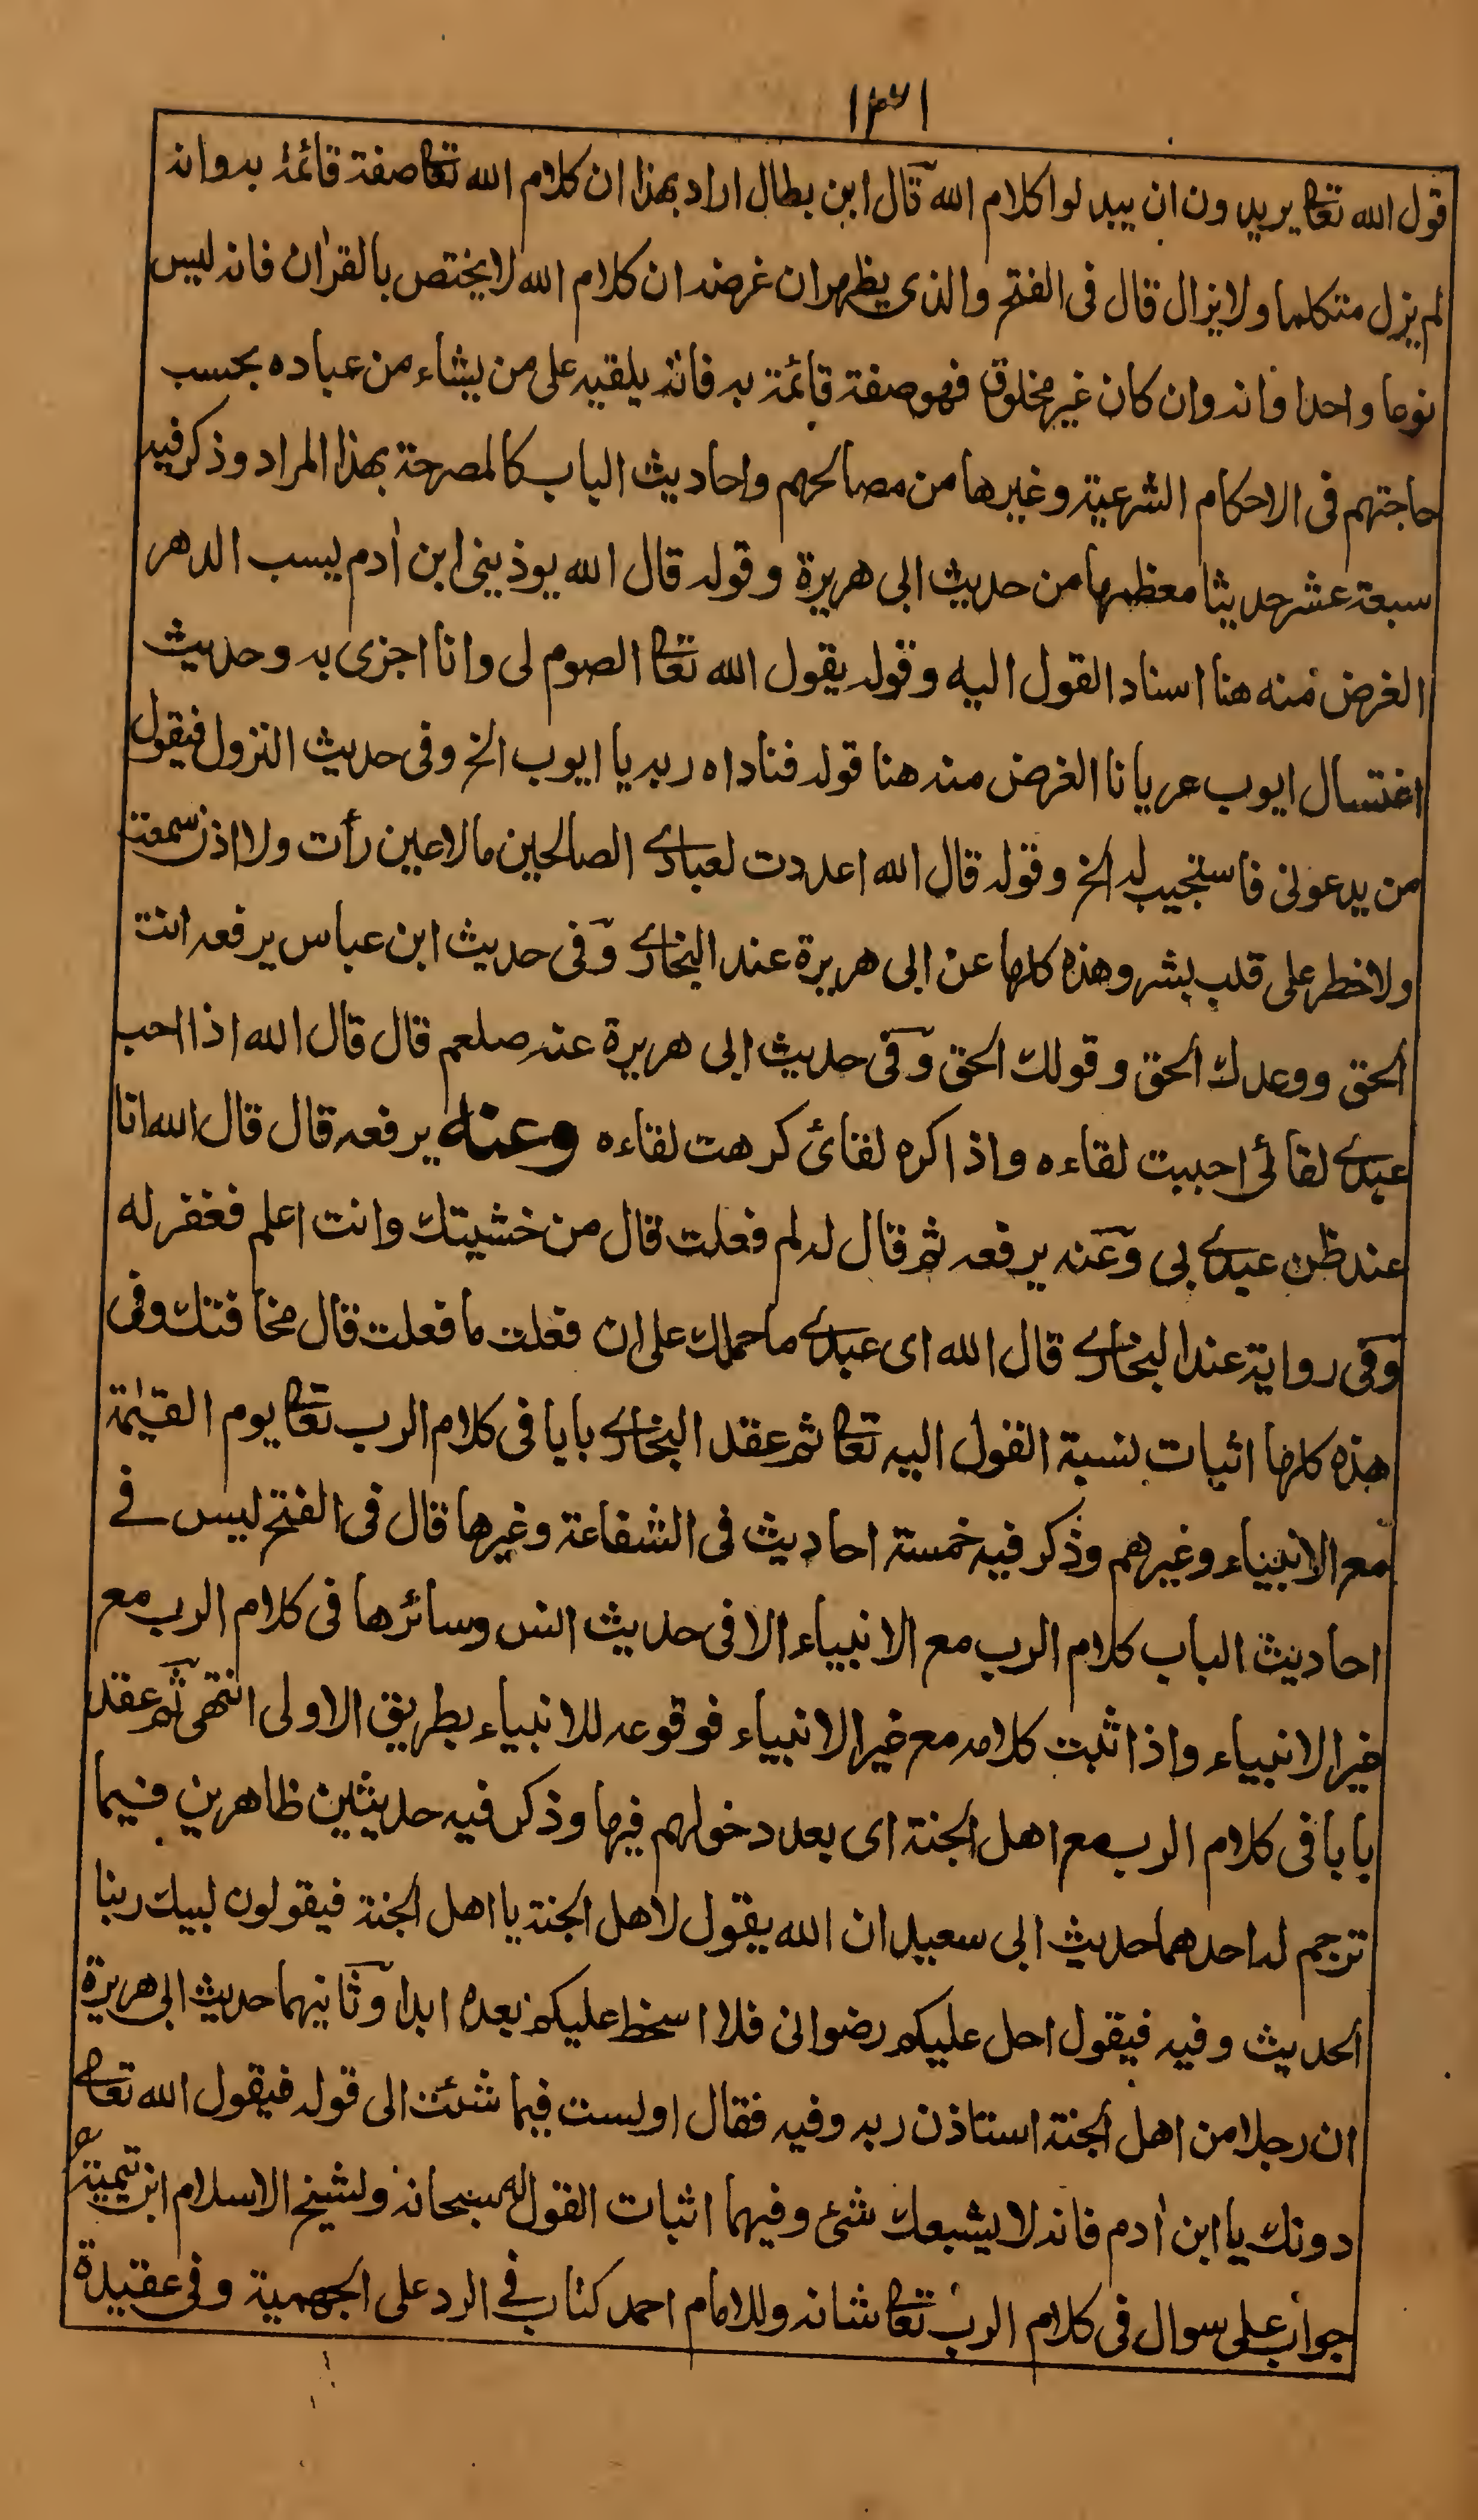 ١٣١
قول الله تعا يريدون ان يبدلوا كلام الله قال ابن بطال اراد بهذا ان كلام الله تعا صفة قائمة به وانه
لم يزل متكلما ولا يزال قال فى الفتح والذى يظهر ان غرضه ان كلام الله لا يختص بالقراٰن فانه ليس
نوعا واحدا فانه وان كان غير مخلوق فهو صفة قائمة به فانه يلقيه على من يشاء من عباده بحسب
حاجتهم فى الاحكام الشرعية وغيرها من مصالحهم واحاديث الباب كالمصرحة بهذا المراد وذكر فيه
سبعة عشر حديثا معظمها من حديث ابى هريرة وقوله قال الله يوذينى ابن اٰدم يسب الدهر
الغرض منه هنا اسناد القول اليه وقوله يقول الله تعا الصوم لى وانا اجزى به وحديث
اغتسال ايوب عريانا الغرض منه هنا قوله فناداه ربه يا ايوب الخ وفى حديث النزول فيقول
من يدعونى فاستجيب له الخ وقوله قال الله اعددت لعبادى الصالحين مالا عين رأت ولا اذن سمعت
ولا خطر على قلب بشر وهذه كلها عن ابى هريرة عند البخارى وفى حديث ابن عباس يرفعه انت
الحق ووعدك الحق وقولك الحق وفى حديث ابى هريرة عنه صلعم قال قال الله اذا احب
عبدى لقائى احببت لقاءه واذا كره لقائى كرهت لقاءه وعنه يرفعه قال قال الله انا
عند ظن عبدى بى وعنه يرفعه ثم قال له لم فعلت قال من خشيتك وانت اعلم فغفر له
وفى رواية عند البخارى قال الله اى عبدى ما حملك على ان فعلت ما فعلت قال مخافتك وفى
هذه كلها اثبات نسبة القول اليه تعا ثم عقد البخارى بابا فى كلام الرب تعا يوم القيٰمة
مع الانبياء وغيرهم وذكر فيه خمسة احاديث فى الشفاعة وغيرها قال فى الفتح ليس فى
احاديث الباب كلام الرب مع الانبياء الا فى حديث انس وسائرها فى كلام الرب مع
غير الانبياء واذا ثبت كلامه مع غير الانبياء فوقوعه للانبياء بطريق الاولى انتهى ثم عقد
بابا فى كلام الرب مع اهل الجنة اى بعد دخولهم فيها وذكر فيه حديثين ظاهرين فيما
ترجم له احدهما حديث ابى سعيد ان الله يقول لاهل الجنة يا اهل الجنة فيقولون لبيك ربنا
الحديث وفيه فيقول احل عليكم رضوانى فلا اسخط عليكم بعده ابدا وثانيهما حديث ابى هريرة
ان رجلا من اهل الجنة استاذن ربه وفيه فقال اولست فيما شئت الى قوله فيقول الله تعا
دونك يا ابن اٰدم فانه لا يشبعك شئ وفيهما اثبات القول له سبحانه ولشيخ الاسلام ابن تيمية رح
جواب على سوال فى كلام الرب تعا شانه وللامام احمد كتاب فى الرد على الجهمية وفى عقيدة